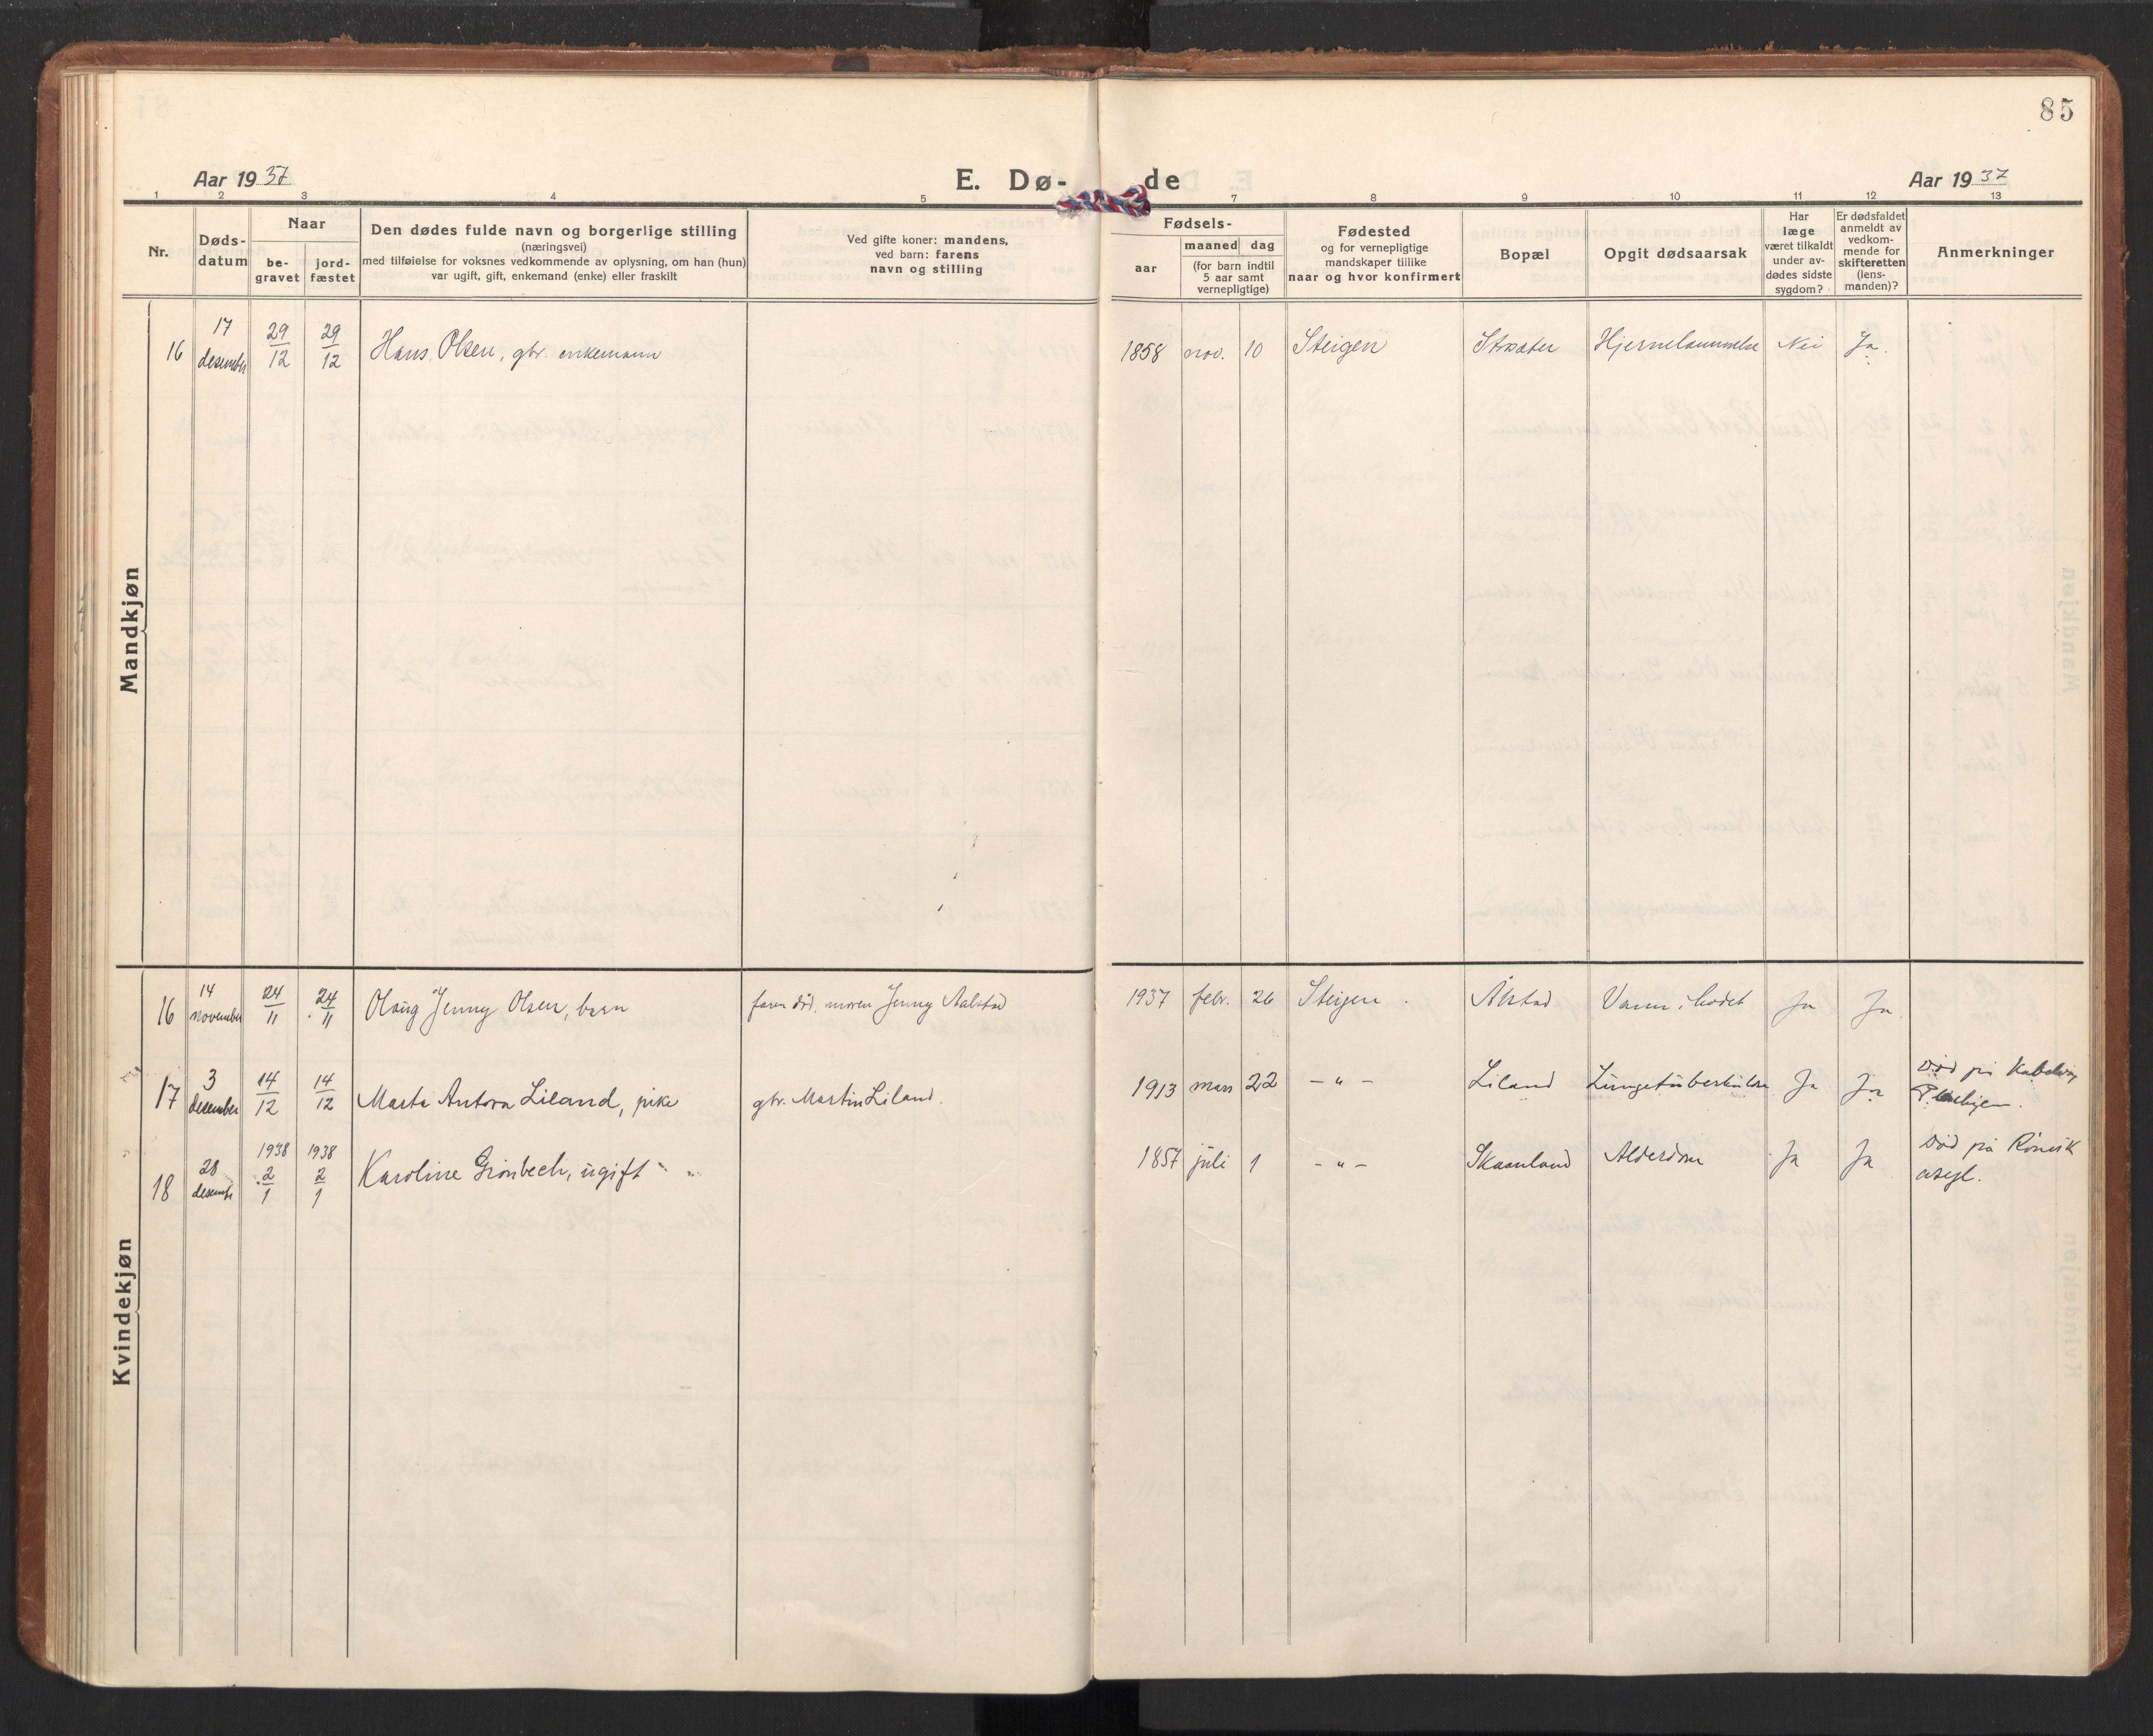 85
Aar 1937
E. Dø-de
Aar 1937
1 2 3 4 5 7 8 9 10 11 12 13
Nr.
Døds-
datum
Naar
be-
gravet
jord-
fæstet
Den dødes fulde navn og borgerlige stilling
(næringsvei)
med tilføielse for voksnes vedkommende av oplysning, om han (hun)
var ugift, gift, enkemand (enke) eller fraskilt
Ved gifte koner: mandens,
ved barn: farens
navn og stilling
Fødsels-
aar
maaned dag
(for barn indtil
5 aar samt
vernepligtige)
Fødested
og for vernepligtige
mandskaper tillike
naar og hvor konfirmert
Bopæl
Opgit dødsaarsak
Har
læge
været tilkaldt
under av-
dødes sidste
sygdom?
Er dødsfaldet
anmeldt av
vedkom-
mende for
skifteretten
(lens-
manden)?
Anmerkninger
Mandkjøn
16 17 desember 29/12 29/12 Hans Olsen, gbr. enkemann 1858 nov. 10 Steigen Hjernelammelse Nei Ja.
Kvindekjøn
16 14 november 24/11 24/11 Olaug Jenny Olsen, barn faren død, moren Jenny Aalstad 1937 febr. 26 Steigen Ålstad Vann i hodet Ja Ja.
17 3 desember 14/12 14/12 Marta Antora Liland, pike gbr. Martin Liland. 1913 mars 22 -"- Liland Lungetuberkulose Ja Ja Død på Kabelvåg
Pleiehjem.
18 28 desember 1938 2/1 1938 2/1 Karoline Grønbech, ugift 1857 juli 1 -"- Skaanland Alderdom Ja Ja Død på Rønvik
asyl.